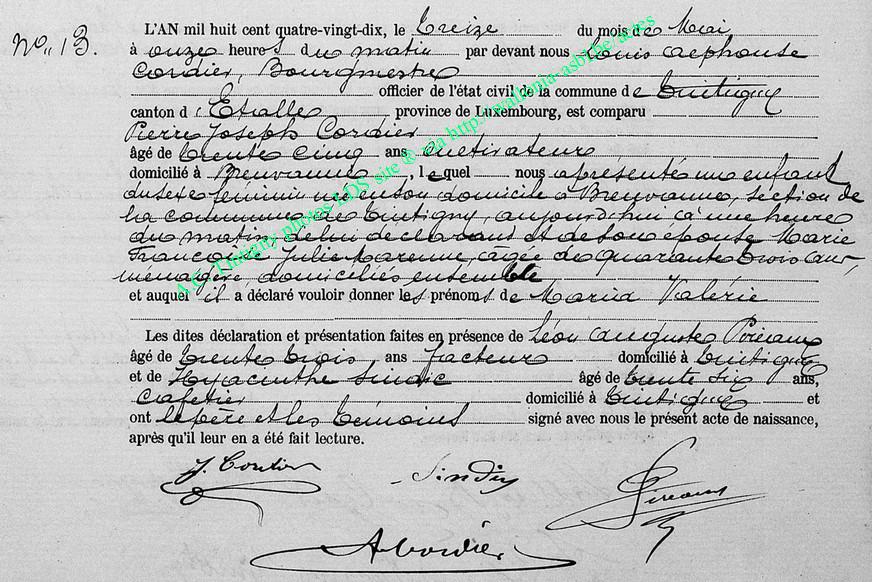 No. 13.
L'AN mil huit cent quatre-vingt-dix, le treize du mois de Mai
à onze heures du matin par devant nous Louis Alphonse
Cordier, Bourgmestre
officier de l'état civil de la commune de Tintigny
canton d'Etalle province de Luxembourg, est comparu
Pierre Joseph Cordier
âgé de trente cinq ans cultivateur
domicilié à Breuvanne, lequel nous a présenté une enfant
du sexe féminin née en son domicile à Breuvanne, section de
la commune de Tintigny, aujourd'hui à une heure
du matin de lui déclarant et de son épouse Marie
Françoise Julie Marenne, âgée de quarante trois ans,
ménagère, domiciliés ensemble
et auquel il a déclaré vouloir donner les prénoms de Maria Valérie
Les dites déclaration et présentation faites en présence de Léon Auguste
âgé de trente trois ans facteur domicilié à Tintigny
et de Hyacinthe âgé de trente six ans,
cafetier domicilié à Tintigny et
ont le père et les témoins signé avec nous le présent acte de naissance,
après qu'il leur en a été fait lecture.
A. Cordier
A.C. Tintigny photos LDS site ® via http://wallonia-asbl.be/actes